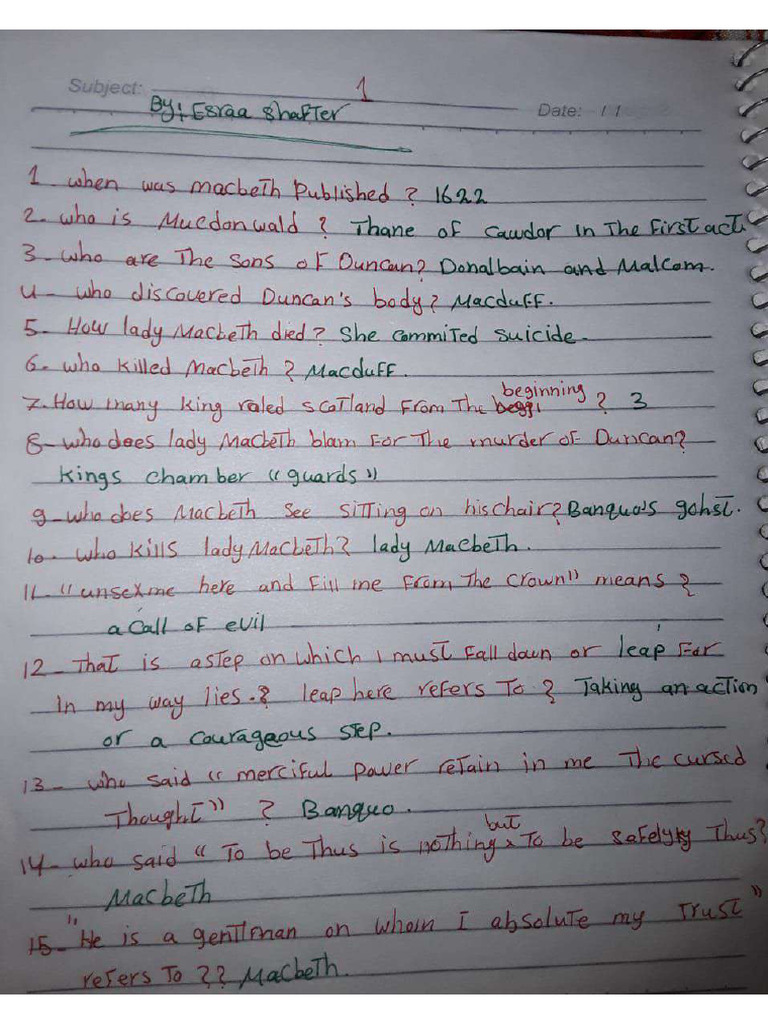 Subject: 1
By: Esraa Shafter Date: / /
1- when was macbeth Published ? 1622
2- who is Mucdonwald ? Thane of cawdor in The first act.
3- who are The Sons of Duncan? Donalbain and Malcom.
4- who discovered Duncan's body? Macduff.
5- How lady Macbeth died? She commited suicide.
6- who killed Macbeth ? Macduff.
beginning
7- How many king roled scotland from The ? 3
8- who does lady Macbeth blam for The murder of Duncan?
kings chamber "guards"
9- who does Macbeth see sitting on his chair? Banquo's gohst.
10- who kills lady Macbeth? lady Macbeth.
11- "unsex me here and fill me from The crown" means ?
a call of evil
12- That is a step on which I must fall down or leap for
in my way lies.? leap here refers To ? Taking an action
or a courageous step.
13- who said "merciful power retain in me The cursed
Thought" ? Banquo.
but
14- who said "To be Thus is nothing To be safely Thus?
Macbeth
15- "He is a gentlman on whom I absolute my Trust"
refers To ?? Macbeth.